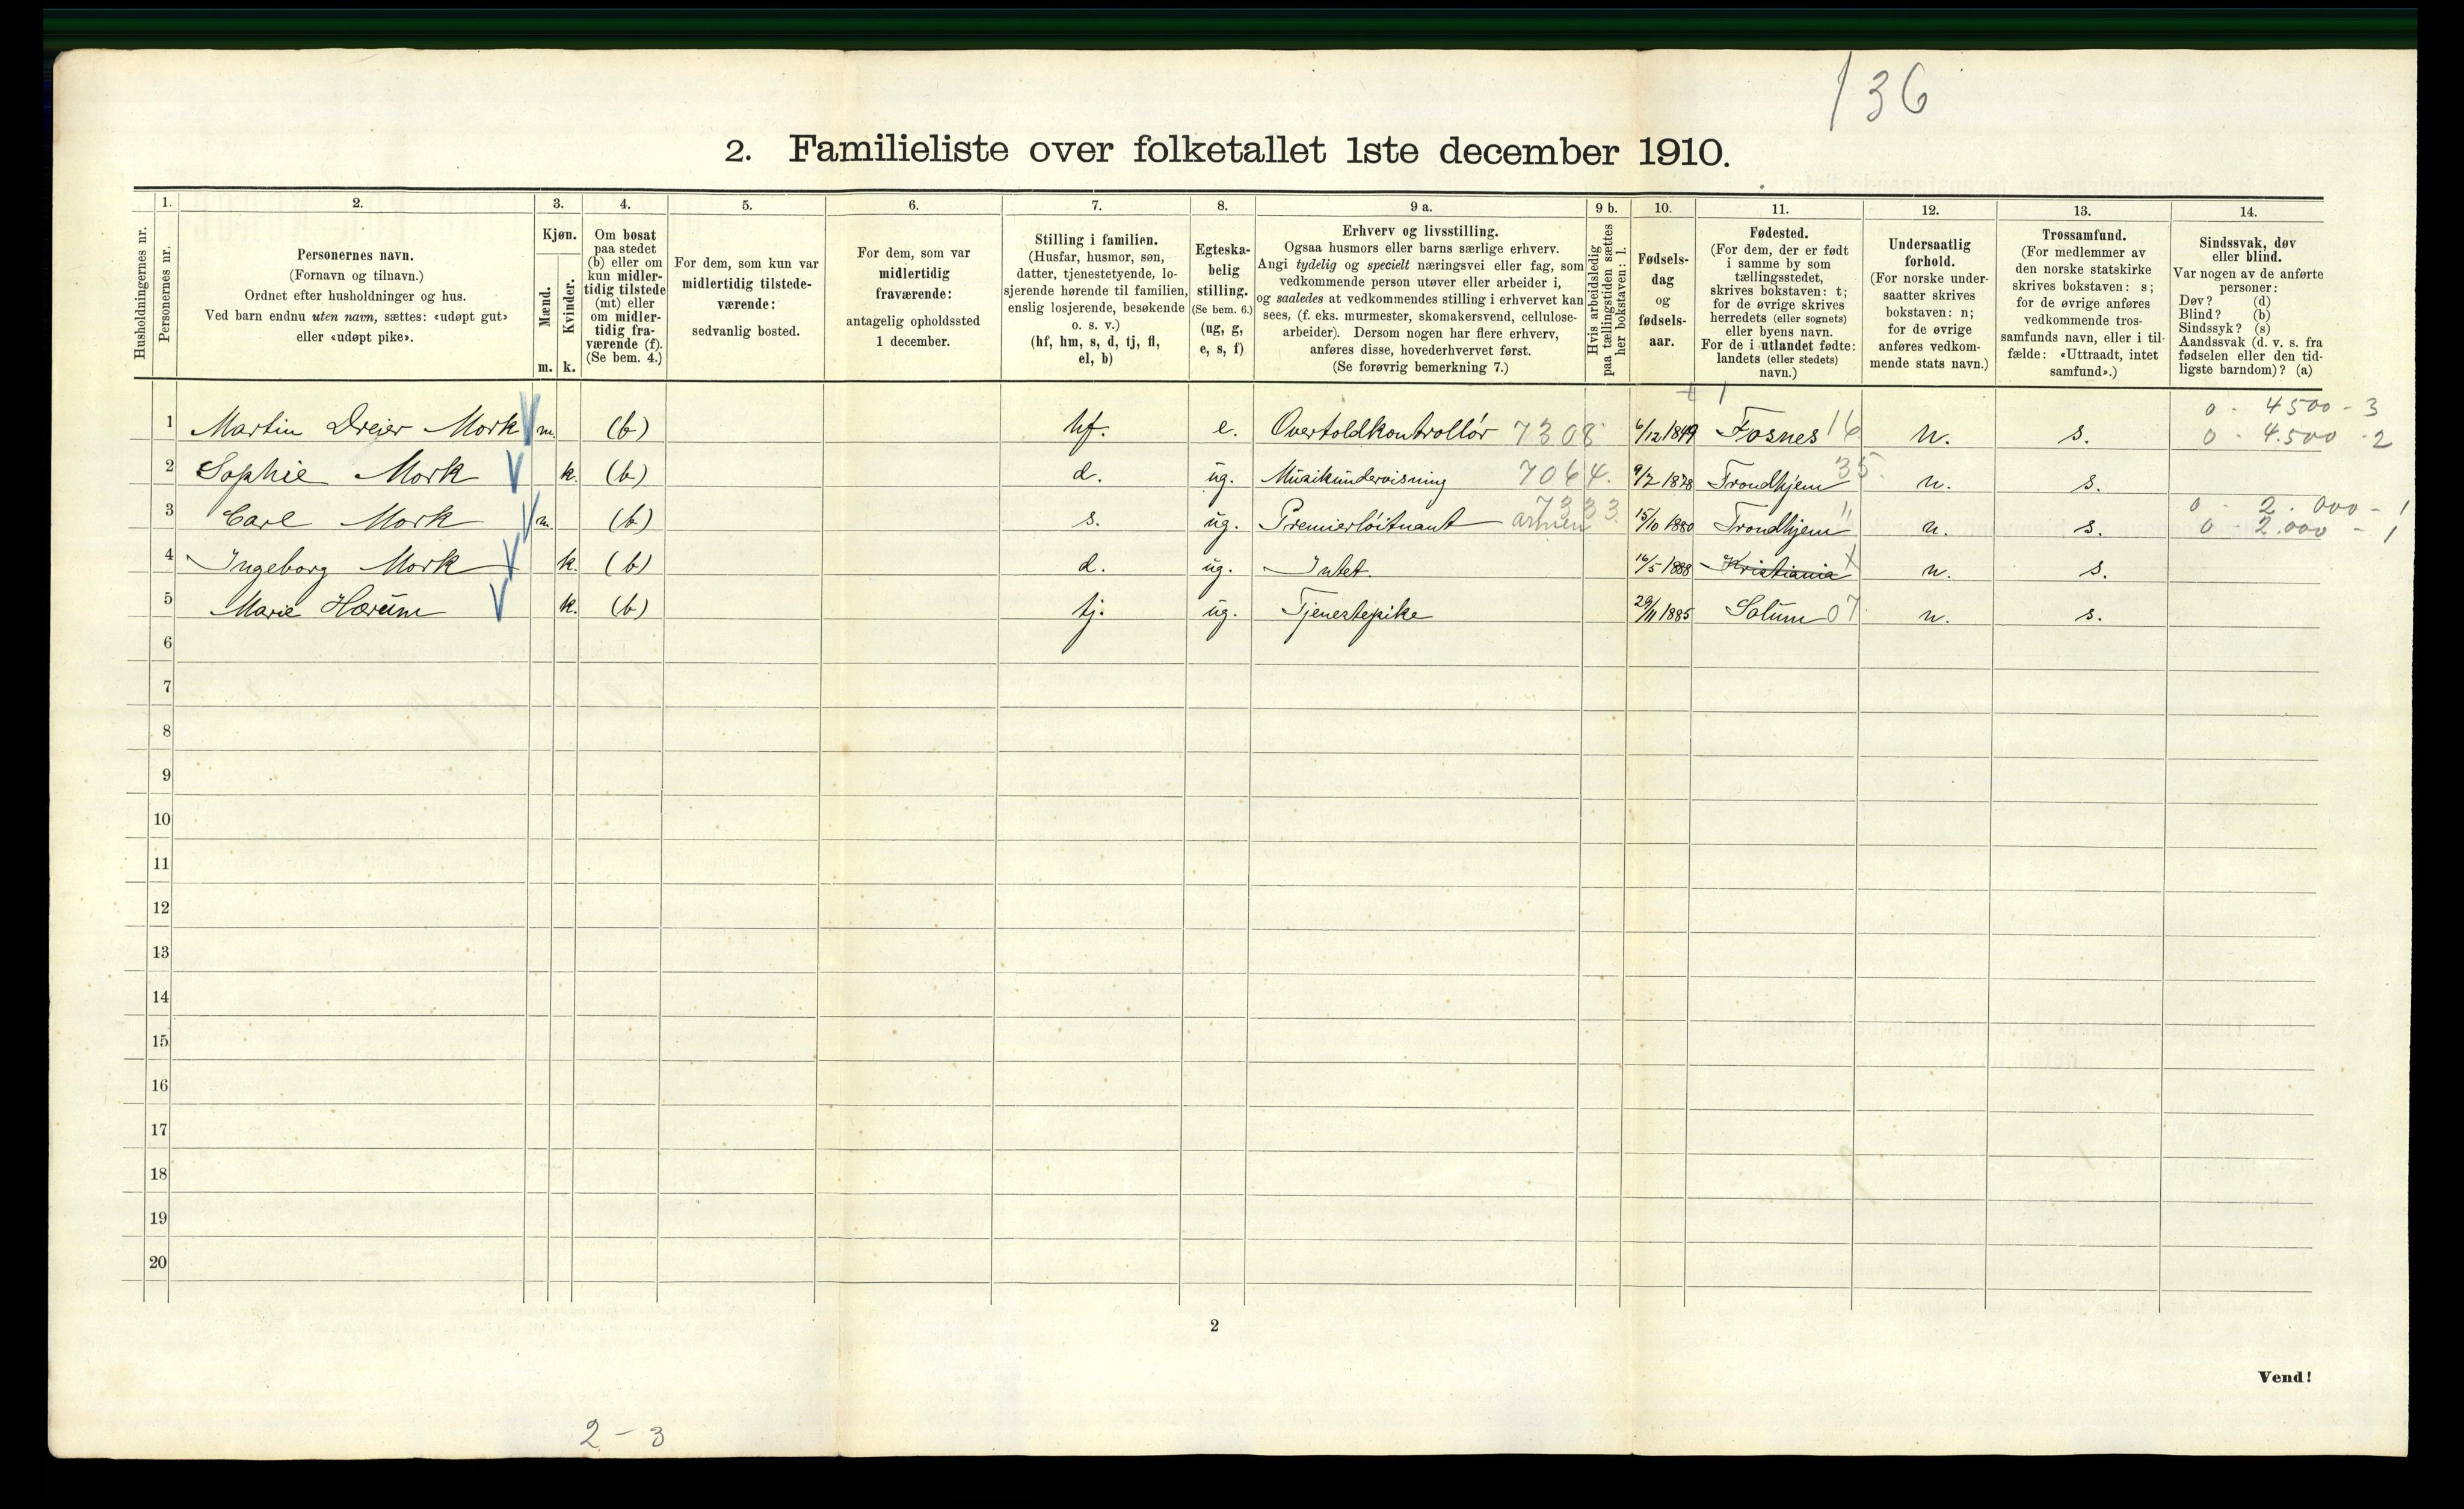 136
2. Familieliste over folketallet 1ste december 1910.
Husholdningernes nr.
1.
Personernes nr.
2.
Personernes navn.
(Fornavn og tilnavn.)
Ordnet efter husholdninger og hus.
Ved barn endnu uten navn, sættes: «udøpt gut»
eller «udøpt pike».
3.
Kjøn.
Mænd.
Kvinder.
m. k.
4.
Om bosat
paa stedet
(b) eller om
kun midler-
tidig tilstede
(mt) eller
om midler-
tidig fra-
værende (f).
(Se bem. 4.)
5.
For dem, som kun var
midlertidig tilstede-
værende:
sedvanlig bosted.
6.
For dem, som var
midlertidig
fraværende:
antagelig opholdssted
1 december.
7.
Stilling i familien.
(Husfar, husmor, søn,
datter, tjenestetyende, lo-
sjerende hørende til familien,
enslig losjerende, besøkende
o. s. v.)
(hf, hm, s, d, tj, fl,
el, b)
8.
Egteska-
belig
stilling.
(Se bem. 6.)
(ug, g,
e, s, f)
9 a.
Erhverv og livsstilling.
Ogsaa husmors eller barns særlige erhverv.
Angi tydelig og specielt næringsvei eller fag, som
vedkommende person utøver eller arbeider i,
og saaledes at vedkommendes stilling i erhvervet kan
sees, (f. eks. murmester, skomakersvend, cellulose-
arbeider). Dersom nogen har flere erhverv,
anføres disse, hovederhvervet først.
(Se forøvrig bemerkning 7.)
9 b.
Hvis arbeidsledig
paa tællingstiden sættes
her bokstaven: l.
10.
Fødsels-
dag
og
fødsels-
aar.
11.
Fødested.
(For dem, der er født
i samme by som
tællingsstedet,
skrives bokstaven: t;
for de øvrige skrives
herredets (eller sognets)
eller byens navn.
For de i utlandet fødte:
landets (eller stedets)
navn.)
12.
Undersaatlig
forhold.
(For norske under-
saatter skrives
bokstaven: n;
for de øvrige
anføres vedkom-
mende stats navn.)
13.
Trossamfund.
(For medlemmer av
den norske statskirke
skrives bokstaven: s;
for de øvrige anføres
vedkommende tros-
samfunds navn, eller i til-
fælde: «Uttraadt, intet
samfund».)
14.
Sindssvak, døv
eller blind.
Var nogen av de anførte
personer:
Døv? (d)
Blind? (b)
Sindssyk? (s)
Aandssvak (d. v. s. fra
fødselen eller den tid-
ligste barndom)? (a)
0 - 4500 - 3
1 Martin Dreier Mork m. (b) hf. e. Overtoldkontrollör 7308 6/12 1849 Fosnes 16 n. s. 0 - 4.500 - 2
2 Sophie Mork k. (b) d. ug. Musikundervisning 7064. 9/2 1878 Trondhjem 35. n. s.
7333. 0 - 2.000 - 1
3 Carl Mork m. (b) s. ug. Premierlöitnant armeen 15/10 1880 Trondhjem " n. s. 0 - 2.000 - 1
4 Ingeborg Mork k. (b) d. ug. Intet. 16/5 1888 Kristiania n. s.
5 Marie Hærum k. (b) tj. ug. Tjenestepike 29/11 1885 Solum 07. n. s.
6
7
8
9
10
11
12
13
14
15
16
17
18
19
20
2
Vend!
2 - 3